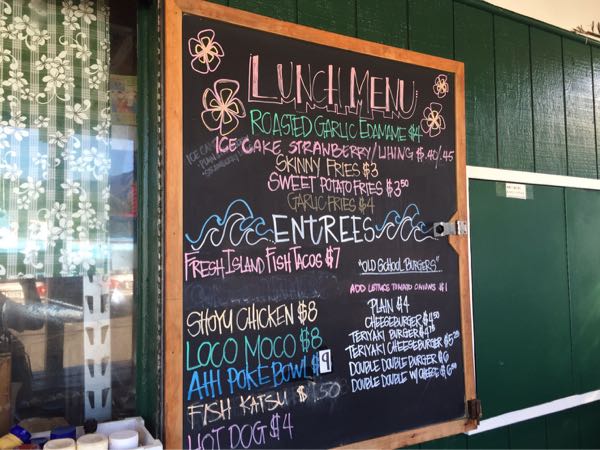 LUNCH MENU
ROASTED GARLIC EDAMAME $4
ICE CAKE STRAWBERRY/LIHING $.40/.45
SKINNY FRIES $3
SWEET POTATO FRIES $3.50
GARLIC FRIES $4
ENTREES
FRESH ISLAND FISH TACOS $7
SHOYU CHICKEN $8
LOCO MOCO $8
AHI POKE BOWL $9
FISH KATSU $7.50
HOT DOG $4
"OLD SCHOOL BURGERS"
ADD LETTUCE TOMATO ONIONS $1
PLAIN $4
CHEESEBURGER $4.50
TERIYAKI BURGER $4.75
TERIYAKI CHEESEBURGER $5.25
DOUBLE DOUBLE BURGER $6
DOUBLE DOUBLE W/ CHEESE $6.50